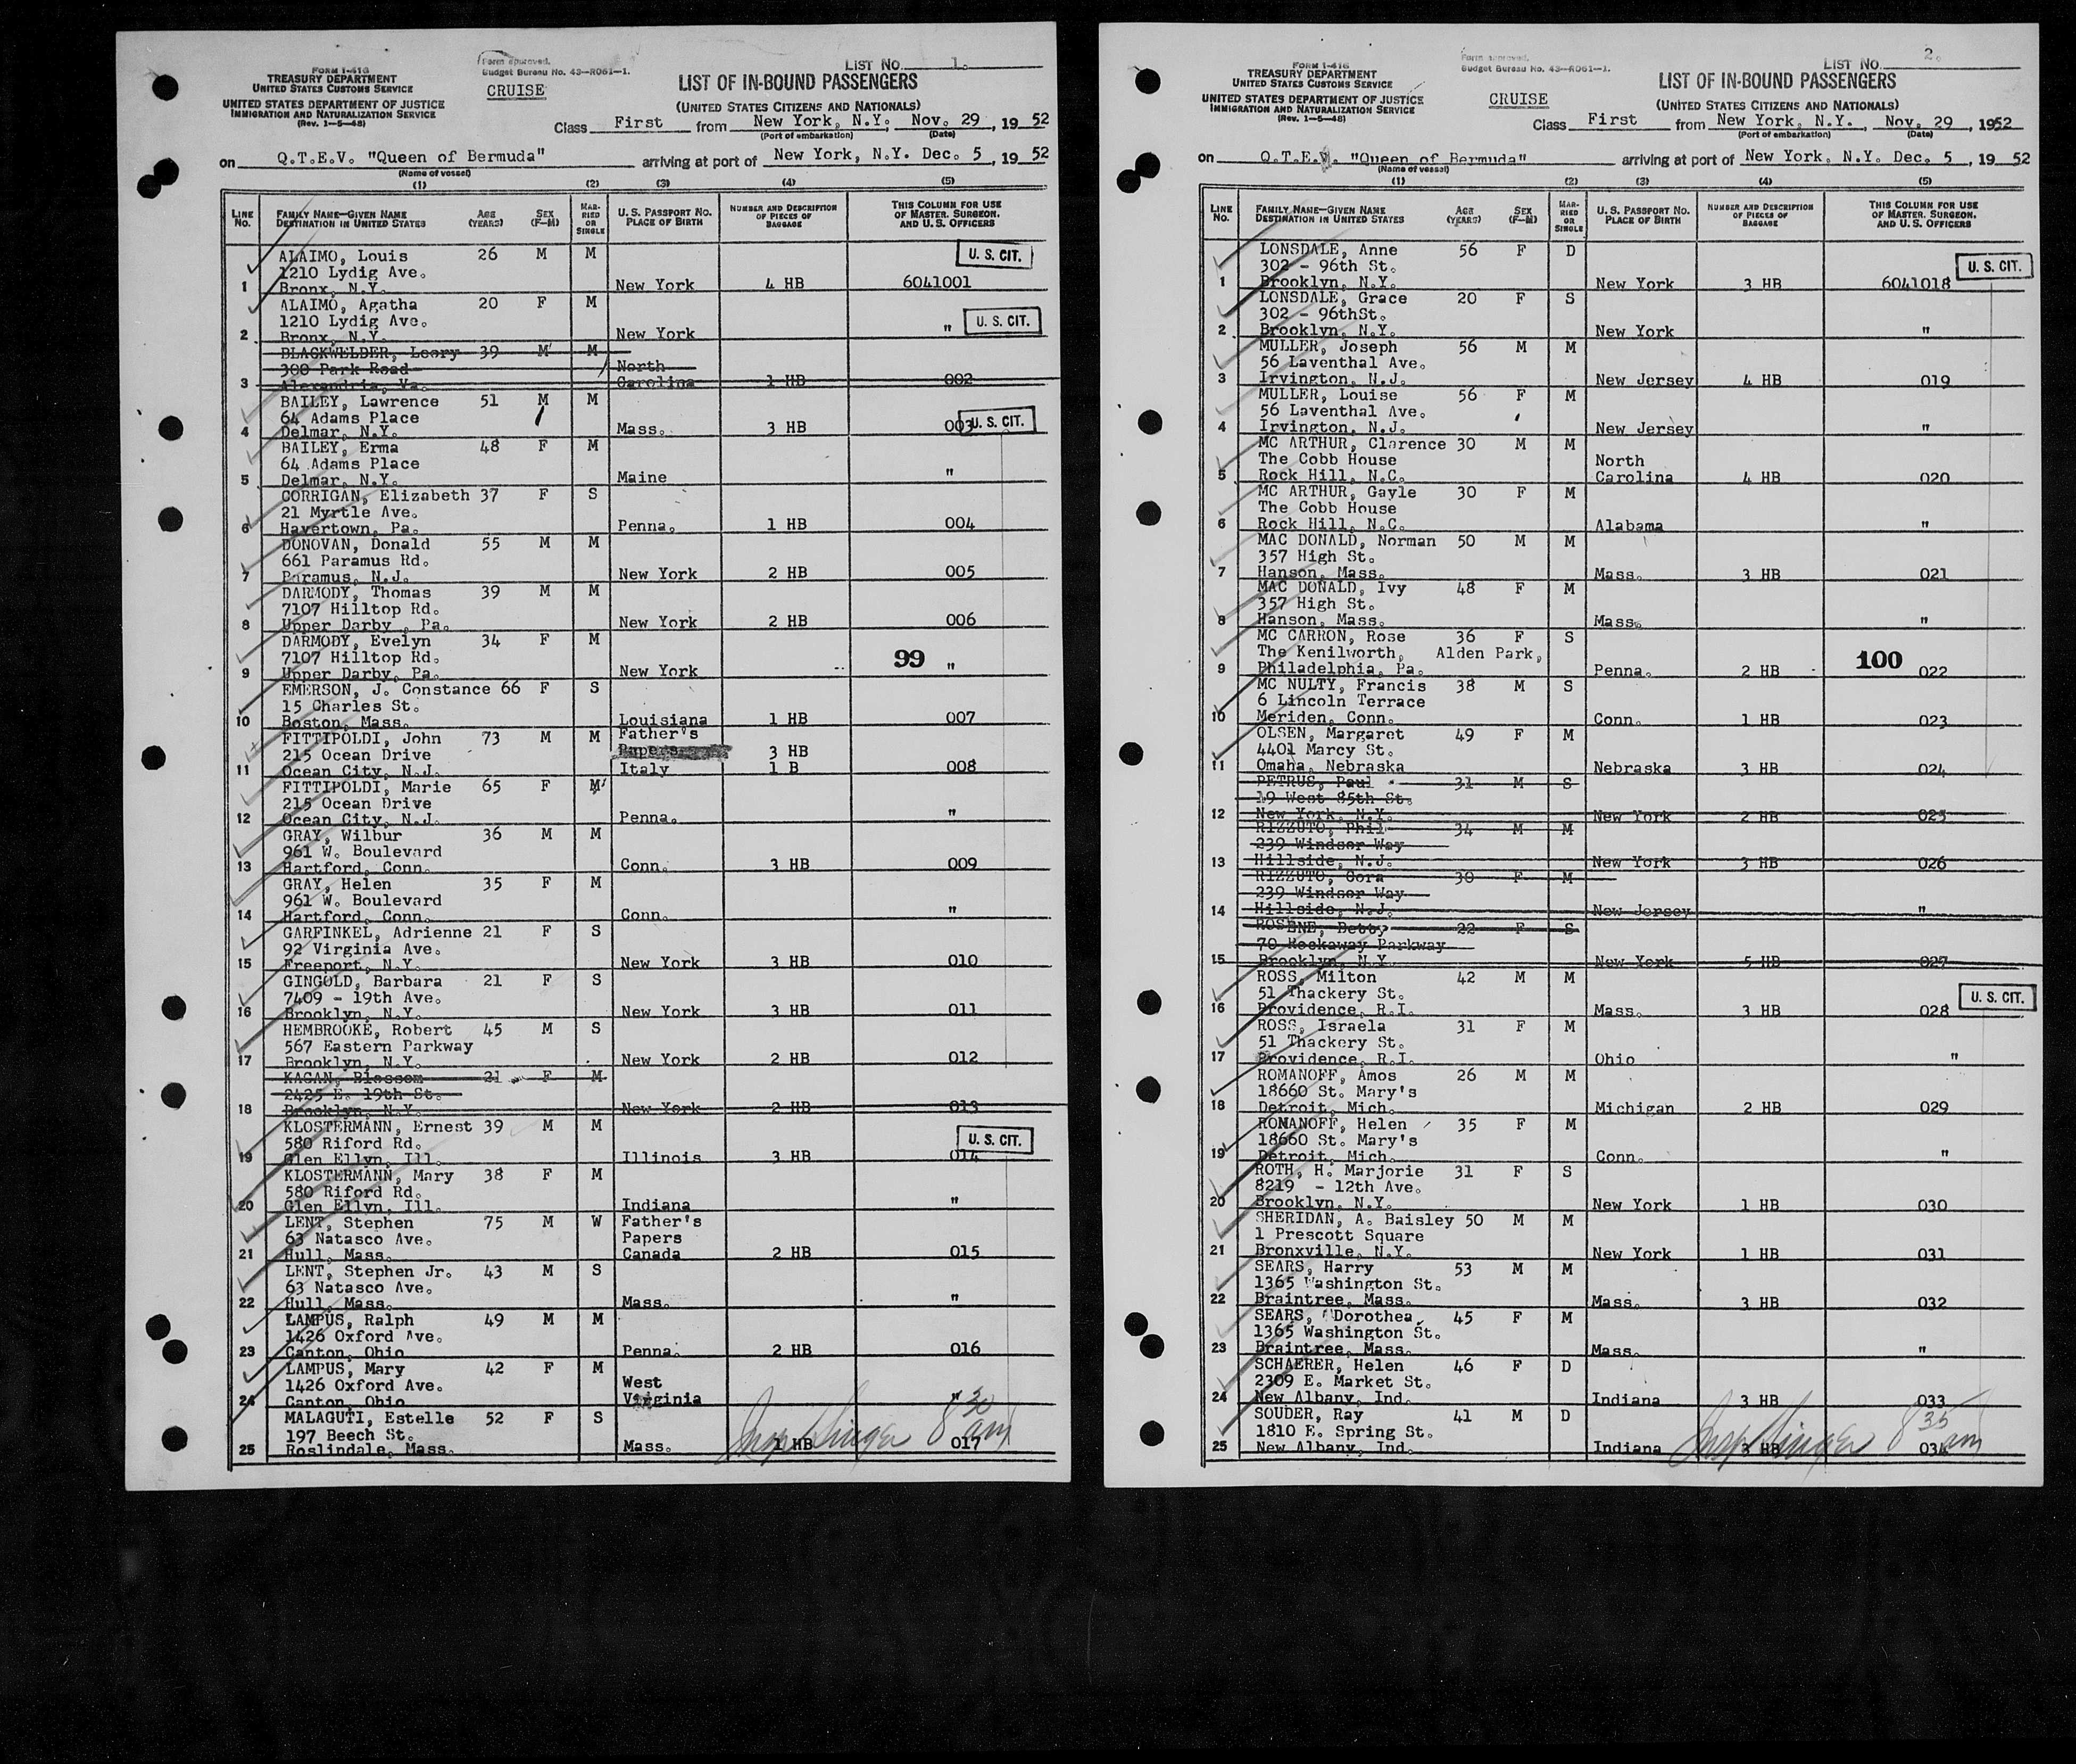 FORM I-416
TREASURY DEPARTMENT
UNITED STATES CUSTOMS SERVICE
UNITED STATES DEPARTMENT OF JUSTICE
IMMIGRATION AND NATURALIZATION SERVICE
(Rev. 1-5-48)
Form approved.
Budget Bureau No. 43-R061-1.
CRUISE
LIST No. 1.
LIST OF IN-BOUND PASSENGERS
(UNITED STATES CITIZENS AND NATIONALS)
Class First from New York, N.Y. Nov. 29, 1952
(Port of embarkation) (Date)
on Q.T.E.V. "Queen of Bermuda" arriving at port of New York, N.Y. Dec. 5, 1952
(Name of vessel)
(1) (2) (3) (4) (5)
LINE No. FAMILY NAME—GIVEN NAME DESTINATION IN UNITED STATES AGE (YEARS) SEX (F-M) MARRIED OR SINGLE U.S. PASSPORT No. PLACE OF BIRTH NUMBER AND DESCRIPTION OF PIECES OF BAGGAGE THIS COLUMN FOR USE OF MASTER, SURGEON, AND U.S. OFFICERS
ALAIMO, Louis 26 M M U. S. CIT.
1210 Lydig Ave.
1 Bronx, N.Y. New York 4 HB 6041001
ALAIMO, Agatha 20 F M
1210 Lydig Ave. " U. S. CIT.
2 Bronx, N.Y. New York
BLACKWELDER, Leory 39 M M
300 Park Road North
3 Alexandria, Va. Carolina 1 HB 002
BAILEY, Lawrence 51 M M
64 Adams Place
4 Delmar, N.Y. Mass. 3 HB 003 U. S. CIT.
BAILEY, Erma 48 F M
64 Adams Place
5 Delmar, N.Y. Maine "
CORRIGAN, Elizabeth 37 F S
21 Myrtle Ave.
6 Havertown, Pa. Penna. 1 HB 004
DONOVAN, Donald 55 M M
661 Paramus Rd.
7 Paramus, N.J. New York 2 HB 005
DARMODY, Thomas 39 M M
7107 Hilltop Rd.
8 Upper Darby, Pa. New York 2 HB 006
DARMODY, Evelyn 34 F M
7107 Hilltop Rd.
9 Upper Darby, Pa. New York 99 "
EMERSON, J. Constance 66 F S
15 Charles St.
10 Boston, Mass. Louisiana 1 HB 007
FITTIPOLDI, John 73 M M Father's
215 Ocean Drive Papers 3 HB
11 Ocean City, N.J. Italy 1 B 008
FITTIPOLDI, Marie 65 F M
215 Ocean Drive
12 Ocean City, N.J. Penna. "
GRAY, Wilbur 36 M M
961 W. Boulevard
13 Hartford, Conn. Conn. 3 HB 009
GRAY, Helen 35 F M
961 W. Boulevard
14 Hartford, Conn. Conn. "
GARFINKEL, Adrienne 21 F S
92 Virginia Ave.
15 Freeport, N.Y. New York 3 HB 010
GINGOLD, Barbara 21 F S
7409 - 19th Ave.
16 Brooklyn, N.Y. New York 3 HB 011
HEMBROOKE, Robert 45 M S
567 Eastern Parkway
17 Brooklyn, N.Y. New York 2 HB 012
KAGAN, Blossom 21 F M
2425 E. 19th St.
18 Brooklyn, N.Y. New York 2 HB 013
KLOSTERMANN, Ernest 39 M M
580 Riford Rd. U. S. CIT.
19 Glen Ellyn, Ill. Illinois 3 HB 014
KLOSTERMANN, Mary 38 F M
580 Riford Rd.
20 Glen Ellyn, Ill. Indiana "
LENT, Stephen 75 M W Father's
63 Natasco Ave. Papers
21 Hull, Mass. Canada 2 HB 015
LENT, Stephen Jr. 43 M S
63 Natasco Ave.
22 Hull, Mass. Mass. "
LAMPUS, Ralph 49 M M
1426 Oxford Ave.
23 Canton, Ohio Penna. 2 HB 016
LAMPUS, Mary 42 F M
1426 Oxford Ave. West
24 Canton, Ohio Virginia "
MALAGUTI, Estelle 52 F S
197 Beech St. Singer 8 30 am
25 Roslindale, Mass. Mass. 1 HB 017
FORM I-416
TREASURY DEPARTMENT
UNITED STATES CUSTOMS SERVICE
UNITED STATES DEPARTMENT OF JUSTICE
IMMIGRATION AND NATURALIZATION SERVICE
(Rev. 1-5-48)
Form approved.
Budget Bureau No. 43-R061-1.
CRUISE
LIST No. 2.
LIST OF IN-BOUND PASSENGERS
(UNITED STATES CITIZENS AND NATIONALS)
Class First from New York, N.Y. Nov. 29, 1952
(Port of embarkation) (Date)
on Q.T.E.V. "Queen of Bermuda" arriving at port of New York, N.Y. Dec. 5, 1952
(Name of vessel)
(1) (2) (3) (4) (5)
LINE No. FAMILY NAME—GIVEN NAME DESTINATION IN UNITED STATES AGE (YEARS) SEX (F-M) MARRIED OR SINGLE U.S. PASSPORT No. PLACE OF BIRTH NUMBER AND DESCRIPTION OF PIECES OF BAGGAGE THIS COLUMN FOR USE OF MASTER, SURGEON, AND U.S. OFFICERS
LONSDALE, Anne 56 F D
302 - 96th St. U. S. CIT.
1 Brooklyn, N.Y. New York 3 HB 6041018
LONSDALE, Grace 20 F S
302 - 96thSt.
2 Brooklyn, N.Y. New York "
MULLER, Joseph 56 M M
56 Laventhal Ave.
3 Irvington, N.J. New Jersey 4 HB 019
MULLER, Louise 56 F M
56 Laventhal Ave.
4 Irvington, N.J. New Jersey "
MC ARTHUR, Clarence 30 M M
The Cobb House North
5 Rock Hill, N.C. Carolina 4 HB 020
MC ARTHUR, Gayle 30 F M
The Cobb House
6 Rock Hill, N.C. Alabama "
MAC DONALD, Norman 50 M M
357 High St.
7 Hanson, Mass. Mass. 3 HB 021
MAC DONALD, Ivy 48 F M
357 High St.
8 Hanson, Mass. Mass. "
MC CARRON, Rose 36 F S
The Kenilworth, Alden Park,
9 Philadelphia, Pa. Penna. 2 HB 100 022
MC NULTY, Francis 38 M S
6 Lincoln Terrace
10 Meriden, Conn. Conn. 1 HB 023
OLSEN, Margaret 49 F M
4401 Marcy St.
11 Omaha, Nebraska Nebraska 3 HB 024
PETRUS, Paul 31 M S
19 West 85th St.
12 New York, N.Y. New York 2 HB 025
RIZZUTO, Phil 34 M M
239 Windsor Way
13 Hillside, N.J. New York 3 HB 026
RIZZUTO, Cora 30 F M
239 Windsor Way
14 Hillside, N.J. New Jersey "
ROSENE, Betty 22 F S
70 Rockaway Parkway
15 Brooklyn, N.Y. New York 5 HB 027
ROSS, Milton 42 M M
51 Thackery St. U. S. CIT.
16 Providence, R.I. Mass. 3 HB 028
ROSS, Israela 31 F M
51 Thackery St.
17 Providence, R.I. Ohio "
ROMANOFF, Amos 26 M M
18660 St. Mary's
18 Detroit, Mich. Michigan 2 HB 029
ROMANOFF, Helen 35 F M
18660 St. Mary's
19 Detroit, Mich. Conn. "
ROTH, H. Marjorie 31 F S
8219 - 12th Ave.
20 Brooklyn, N.Y. New York 1 HB 030
SHERIDAN, A. Baisley 50 M M
1 Prescott Square
21 Bronxville, N.Y. New York 1 HB 031
SEARS, Harry 53 M M
1365 Washington St.
22 Braintree, Mass. Mass. 3 HB 032
SEARS, Dorothea 45 F M
1365 Washington St.
23 Braintree, Mass. Mass. "
SCHAERER, Helen 46 F D
2309 E. Market St.
24 New Albany, Ind. Indiana 3 HB 033
SOUDER, Ray 41 M D
1810 E. Spring St. Singer 8 35 am
25 New Albany, Ind. Indiana 3 HB 034